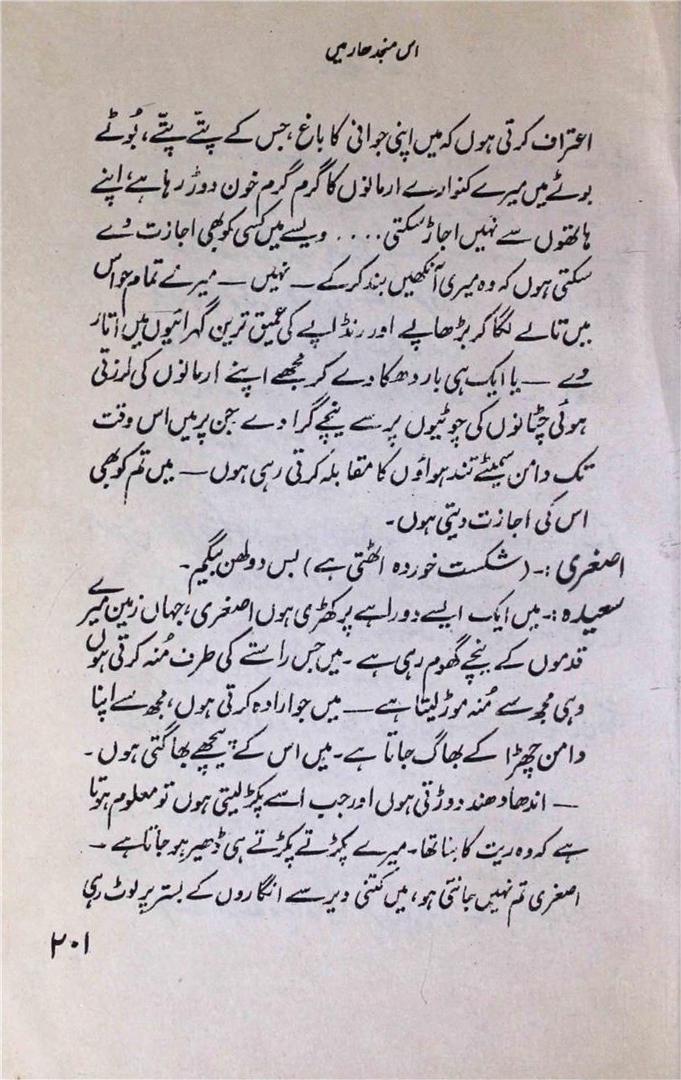 اس منجدھار میں
اعتراف کرتی ہوں کہ میں اپنی جوانی کا باغ، جس کے پتّے پتّے، بُوٹے
بوٹے میں میرے کنوارے ارمانوں کا گرم گرم خون دوڑ رہا ہے، اپنے
ہاتھوں سے نہیں اجاڑ سکتی .... ویسے میں کسی کو بھی اجازت دے
سکتی ہوں کہ وہ میری آنکھیں بند کر کے — نہیں — میرے تمام حواس
میں تالے لگا کر بڑھاپے اور رنڈاپے کی عمیق ترین گہرائیوں میں اتار
دے — یا ایک ہی بار دھکا دے کر مجھے اپنے ارمانوں کی لرزتی
ہوئی چٹانوں کی چوٹیوں پر سے نیچے گرا دے جن پر میں اس وقت
تک دامن سمیٹے تند ہواؤں کا مقابلہ کرتی رہی ہوں — میں تم کو بھی
اس کی اجازت دیتی ہوں۔
اصغری :۔ (شکست خوردہ اٹھتی ہے) بس دولھن بیگم۔
سعیدہ :۔ میں ایک ایسے دوراہے پر کھڑی ہوں اصغری، جہاں زمین میرے
قدموں کے نیچے گھوم رہی ہے ۔ میں جس راستے کی طرف مُنہ کرتی ہوں
وہی مجھ سے مُنہ موڑ لیتا ہے — میں جو ارادہ کرتی ہوں، مجھ سے اپنا
دامن چھڑا کے بھاگ جاتا ہے۔ میں اس کے پیچھے بھاگتی ہوں ۔
— اندھا دھند دوڑتی ہوں اور جب اسے پکڑ لیتی ہوں تو معلوم ہوتا
ہے کہ وہ ریت کا بنا تھا۔ میرے پکڑتے پکڑتے ہی ڈھیر ہو جاتا ہے ۔
اصغری تم نہیں جانتی ہو، میں کتنی دیر سے انگاروں کے بستر پر لوٹ رہی
۲۰۱